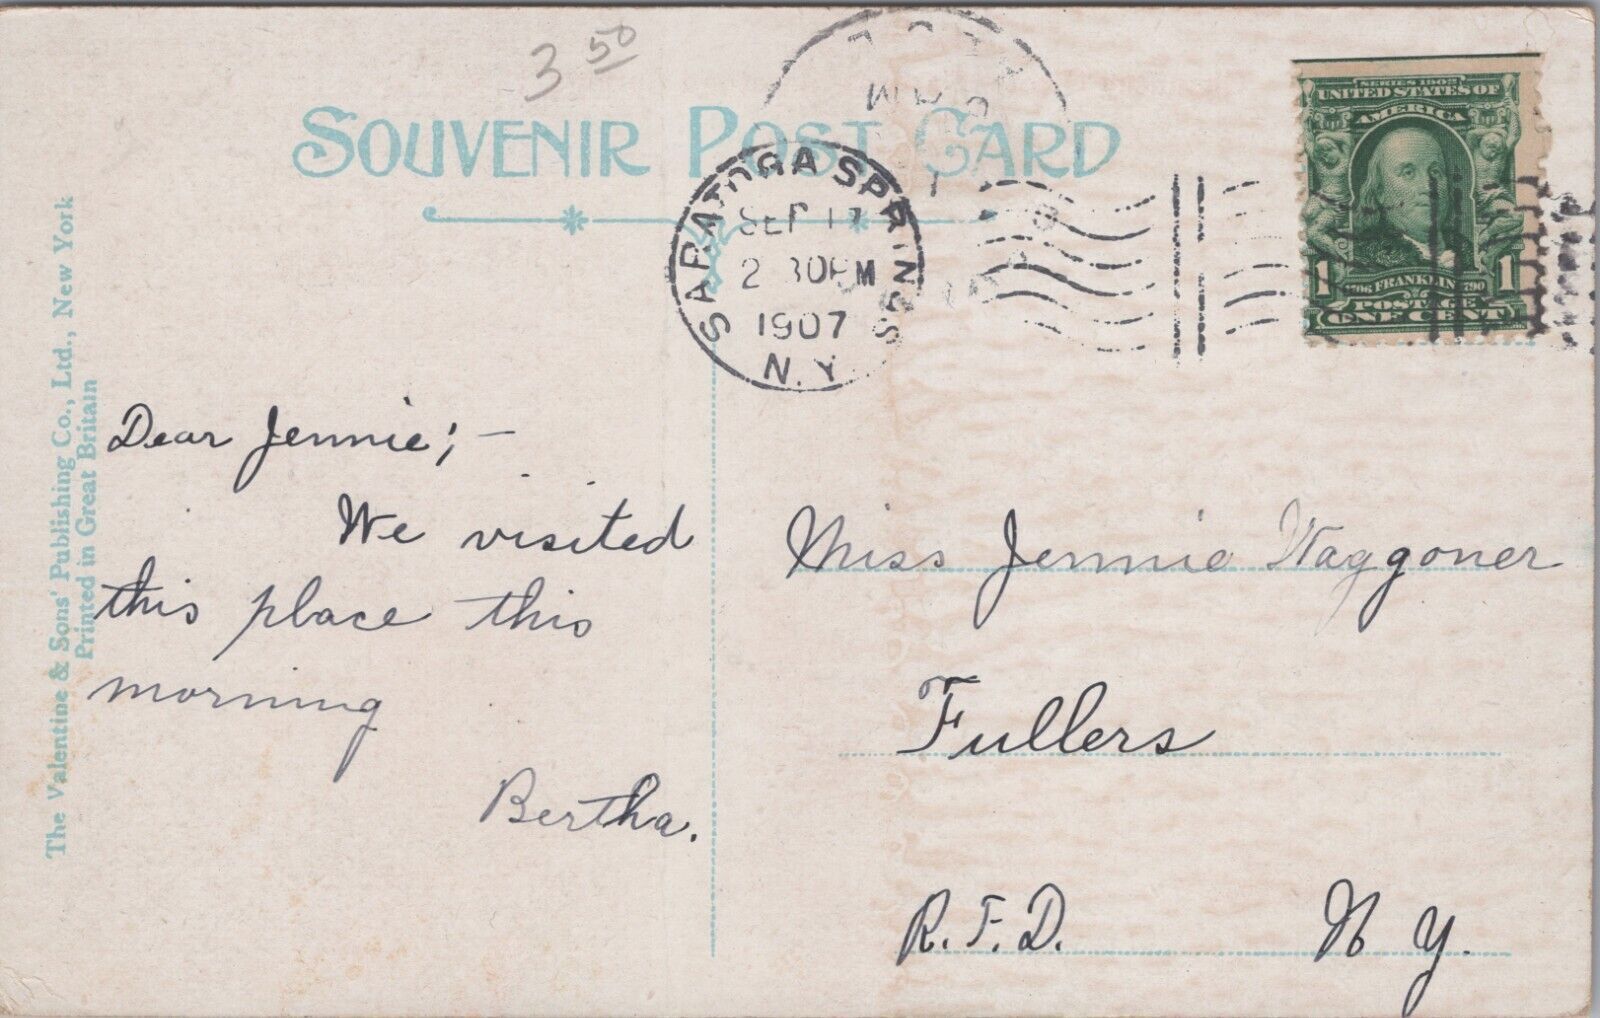 3 50
SOUVENIR POST CARD
SARATOGA SPRINGS
SEP 17
2 30PM
1907
N.Y.
SERIES 1902
UNITED STATES OF
AMERICA
1 FRANKLIN 1790 1
POSTAGE
ONE CENT
The Valentine & Sons' Publishing Co., Ltd., New York
Printed in Great Britain
Dear Jennie; -
We visited
this place this
morning
Bertha.
Miss Jennie Waggoner
Fullers
R.F.D. N Y.